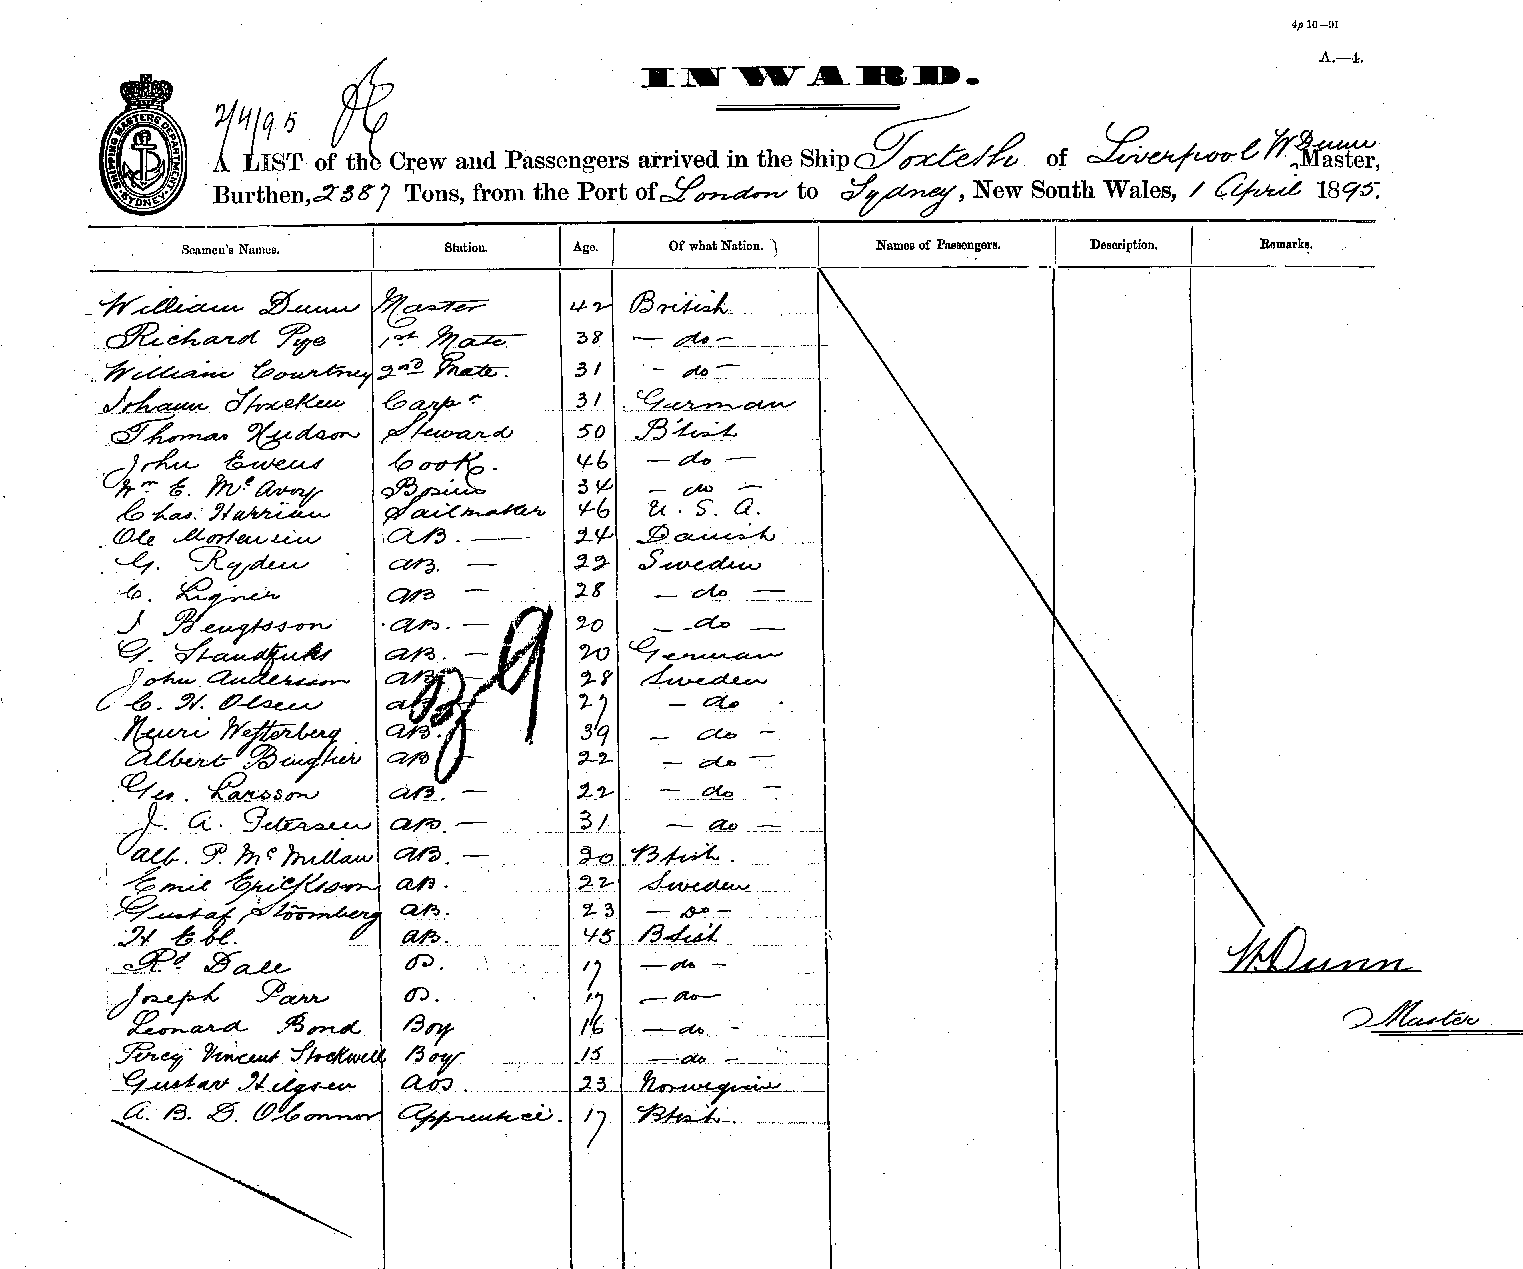 4p 10—91
A.—4.
INWARD.
2/4/95
SHIPPING MASTERS DEPARTMENT SYDNEY
A LIST of the Crew and Passengers arrived in the Ship Toxteth of Liverpool W Dunn Master,
Burthen, 2387 Tons, from the Port of London to Sydney, New South Wales, 1 April 1895.
Seamen's Names. Station. Age. Of what Nation. Names of Passengers. Description. Remarks.
William Dunn Master 42 British
Richard Pye 1st Mate 38 — do —
William Courtney 2nd Mate. 31 — do —
Johann Carpr 31 German
Thomas Hudson Steward 50 B'tish
John Ewens Cook. 46 — do —
Wm E. McAvoy 34 — do —
Chas. Sailmaker 46 U. S. A.
Ole Mortensen AB. — 24 Danish
G. Ryden AB. — 22 Sweden
C. Ligner AB — 28 — do —
J Bengtsson AB. — 20 — do —
G. Standfuhs AB. — 20 German
John Anderson AB — 28 Sweden
C. H. Olsen AB — 27 — do
Henri Westerberg AB. — 39 — do —
Albert AB — 22 — do —
Geo. Larsson AB. — 22 — do —
J. A. Petersen AB. — 31 — do —
Alb. P. McMillan AB. — 20 Btish.
Emil Ericksson AB. 22 Sweden
Gustaf Stoomberg AB. 23 — Do —
H Ebl. AB. 45 Btish
Rd Dale OS. 17 — do —
Joseph Parr OS. 17 — do —
Leonard Bond Boy 16 — do —
Percy Vincent Stockwell Boy 15 — do —
Gustav Hilgren AOS. 23 Norwegian
A. B. D. O'Connor Apprentice. 17 Btish.
W. Dunn
Master